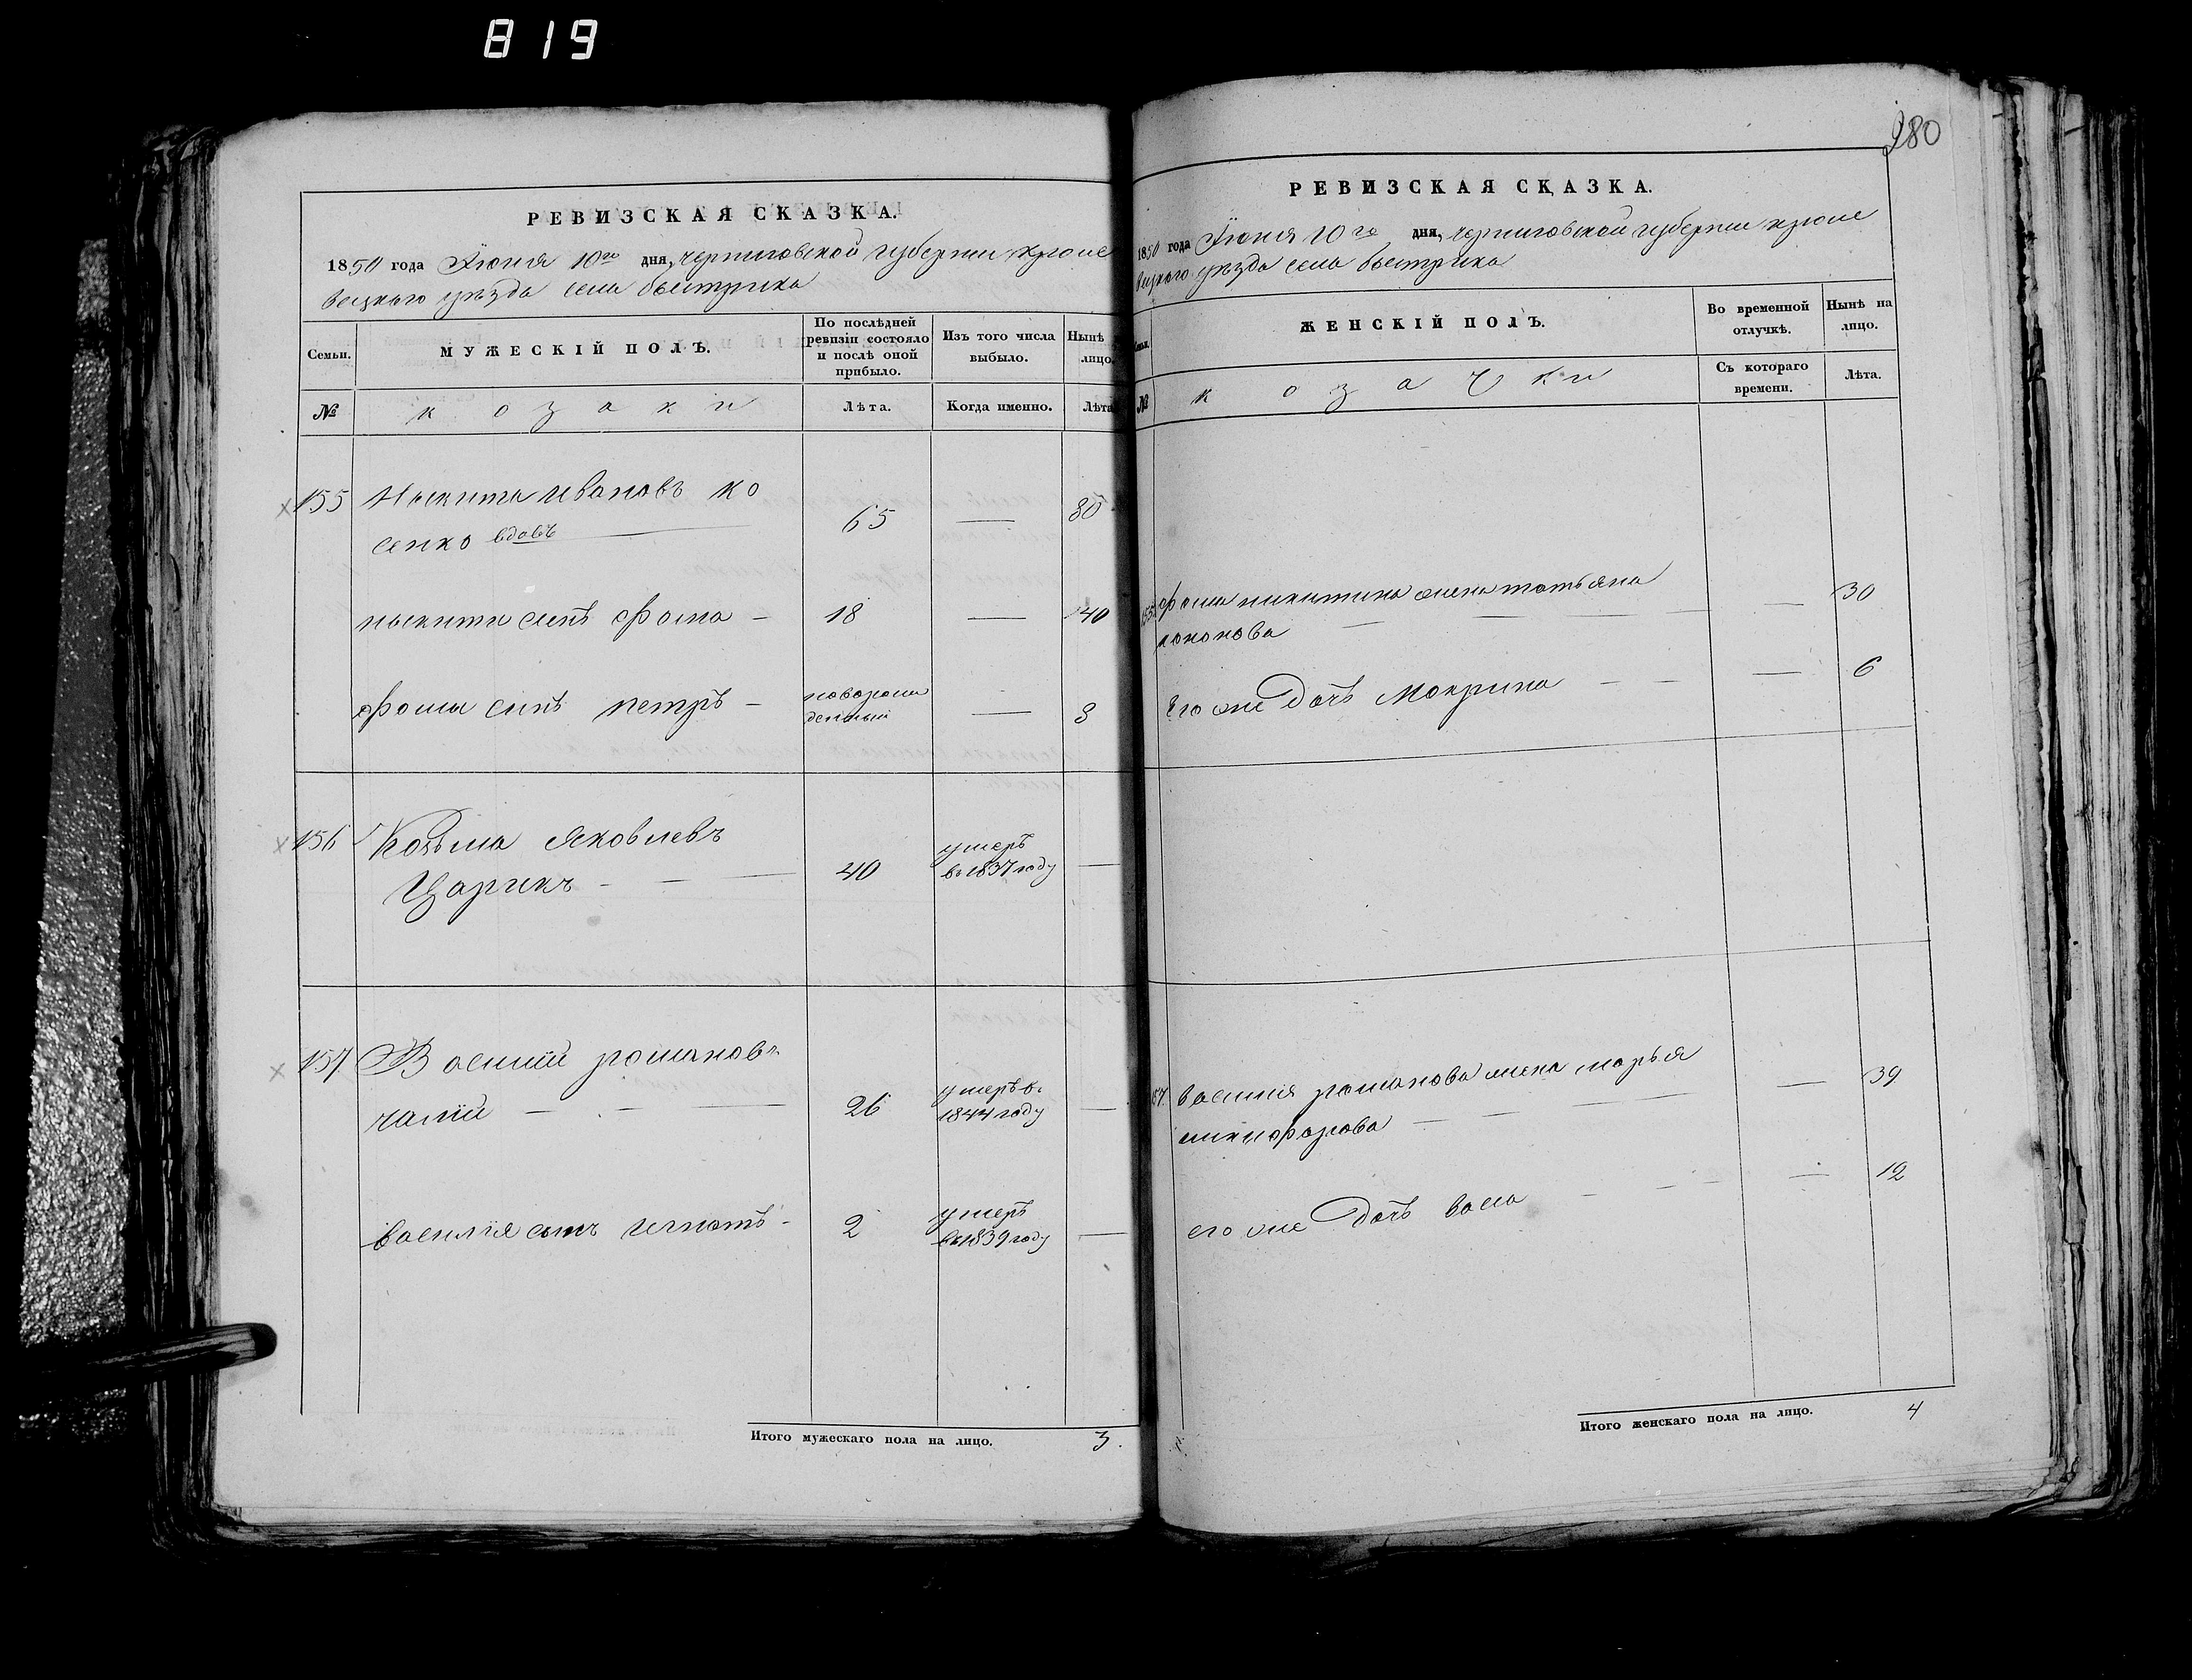 819
РЕВИЗСКАЯ СКАЗКА.
1850 года Июня 10го дня, черниговской губернии кроле
вецкого уезда села быстрика
Семьи.
МУЖЕСКІЙ ПОЛЪ.
По послѣдней
ревизіи состояло
и послѣ оной
прибыло.
Изъ того числа
выбыло.
Нынѣ
лицо.
№
козаки
Лѣта.
Когда именно.
Лѣта
155 Никита ивановъ ко
сенко вдовъ 65 — 80
никити синъ фома — 18 — 40
фоми синъ петръ — новорож
денный — 8
156 Козьма Яковлевъ
Царикъ — — 40 умеръ
въ 1837 году —
157 Василий романовъ
чалий — — — 26 умеръ в.
1844 году —
василия сынъ игнатъ — 2 умеръ
въ 1839 году —
Итого мужескаго пола на лицо. 3.
280
РЕВИЗСКАЯ СКАЗКА.
1850 года Июня 10го дня, черниговской губернии кроле
вецкого уѣзда села быстрика
ЖЕНСКІЙ ПОЛЪ.
Во временной
отлучкѣ.
Нынѣ на
лицо.
№
козачки
Съ котораго
времени.
Лѣта.
155 фоми никитина жена татьяна
кононова — — — — 30
Его же дочь Мокрина — — — 6
157. василия романова жена марья
никифорова — — — 39
его же дочь васа — — — — 12
Итого женскаго пола на лицо. 4